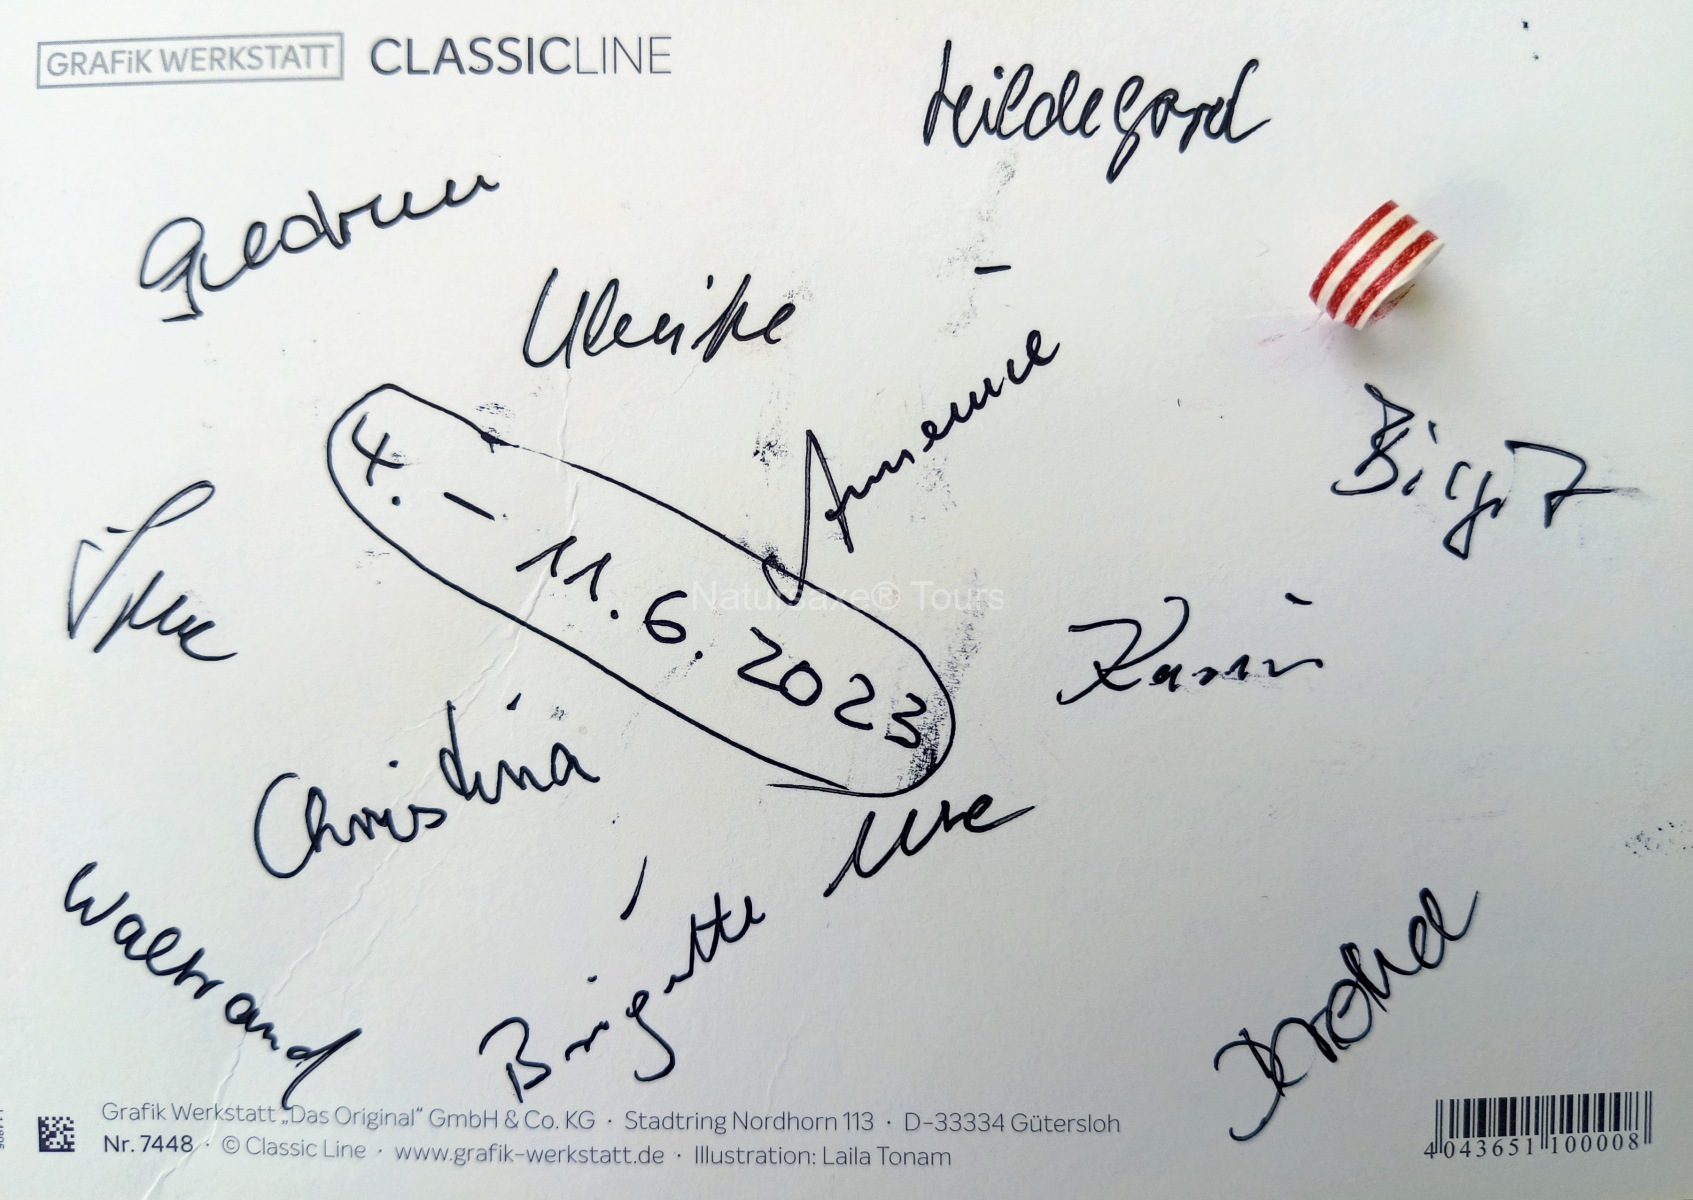 GRAFiK WERKSTATT CLASSICLINE
Hildegard
Gudrun
Ulrike
Annemie
Birgit
4. – 11.6.2023
NaturSaxe® Tours
Karin
Christina
Ute
Waltraud
Brigitte
Grafik Werkstatt „Das Original“ GmbH & Co. KG · Stadtring Nordhorn 113 · D-33334 Gütersloh
Nr. 7448 · © Classic Line · www.grafik-werkstatt.de · Illustration: Laila Tonam
4 043651 100008